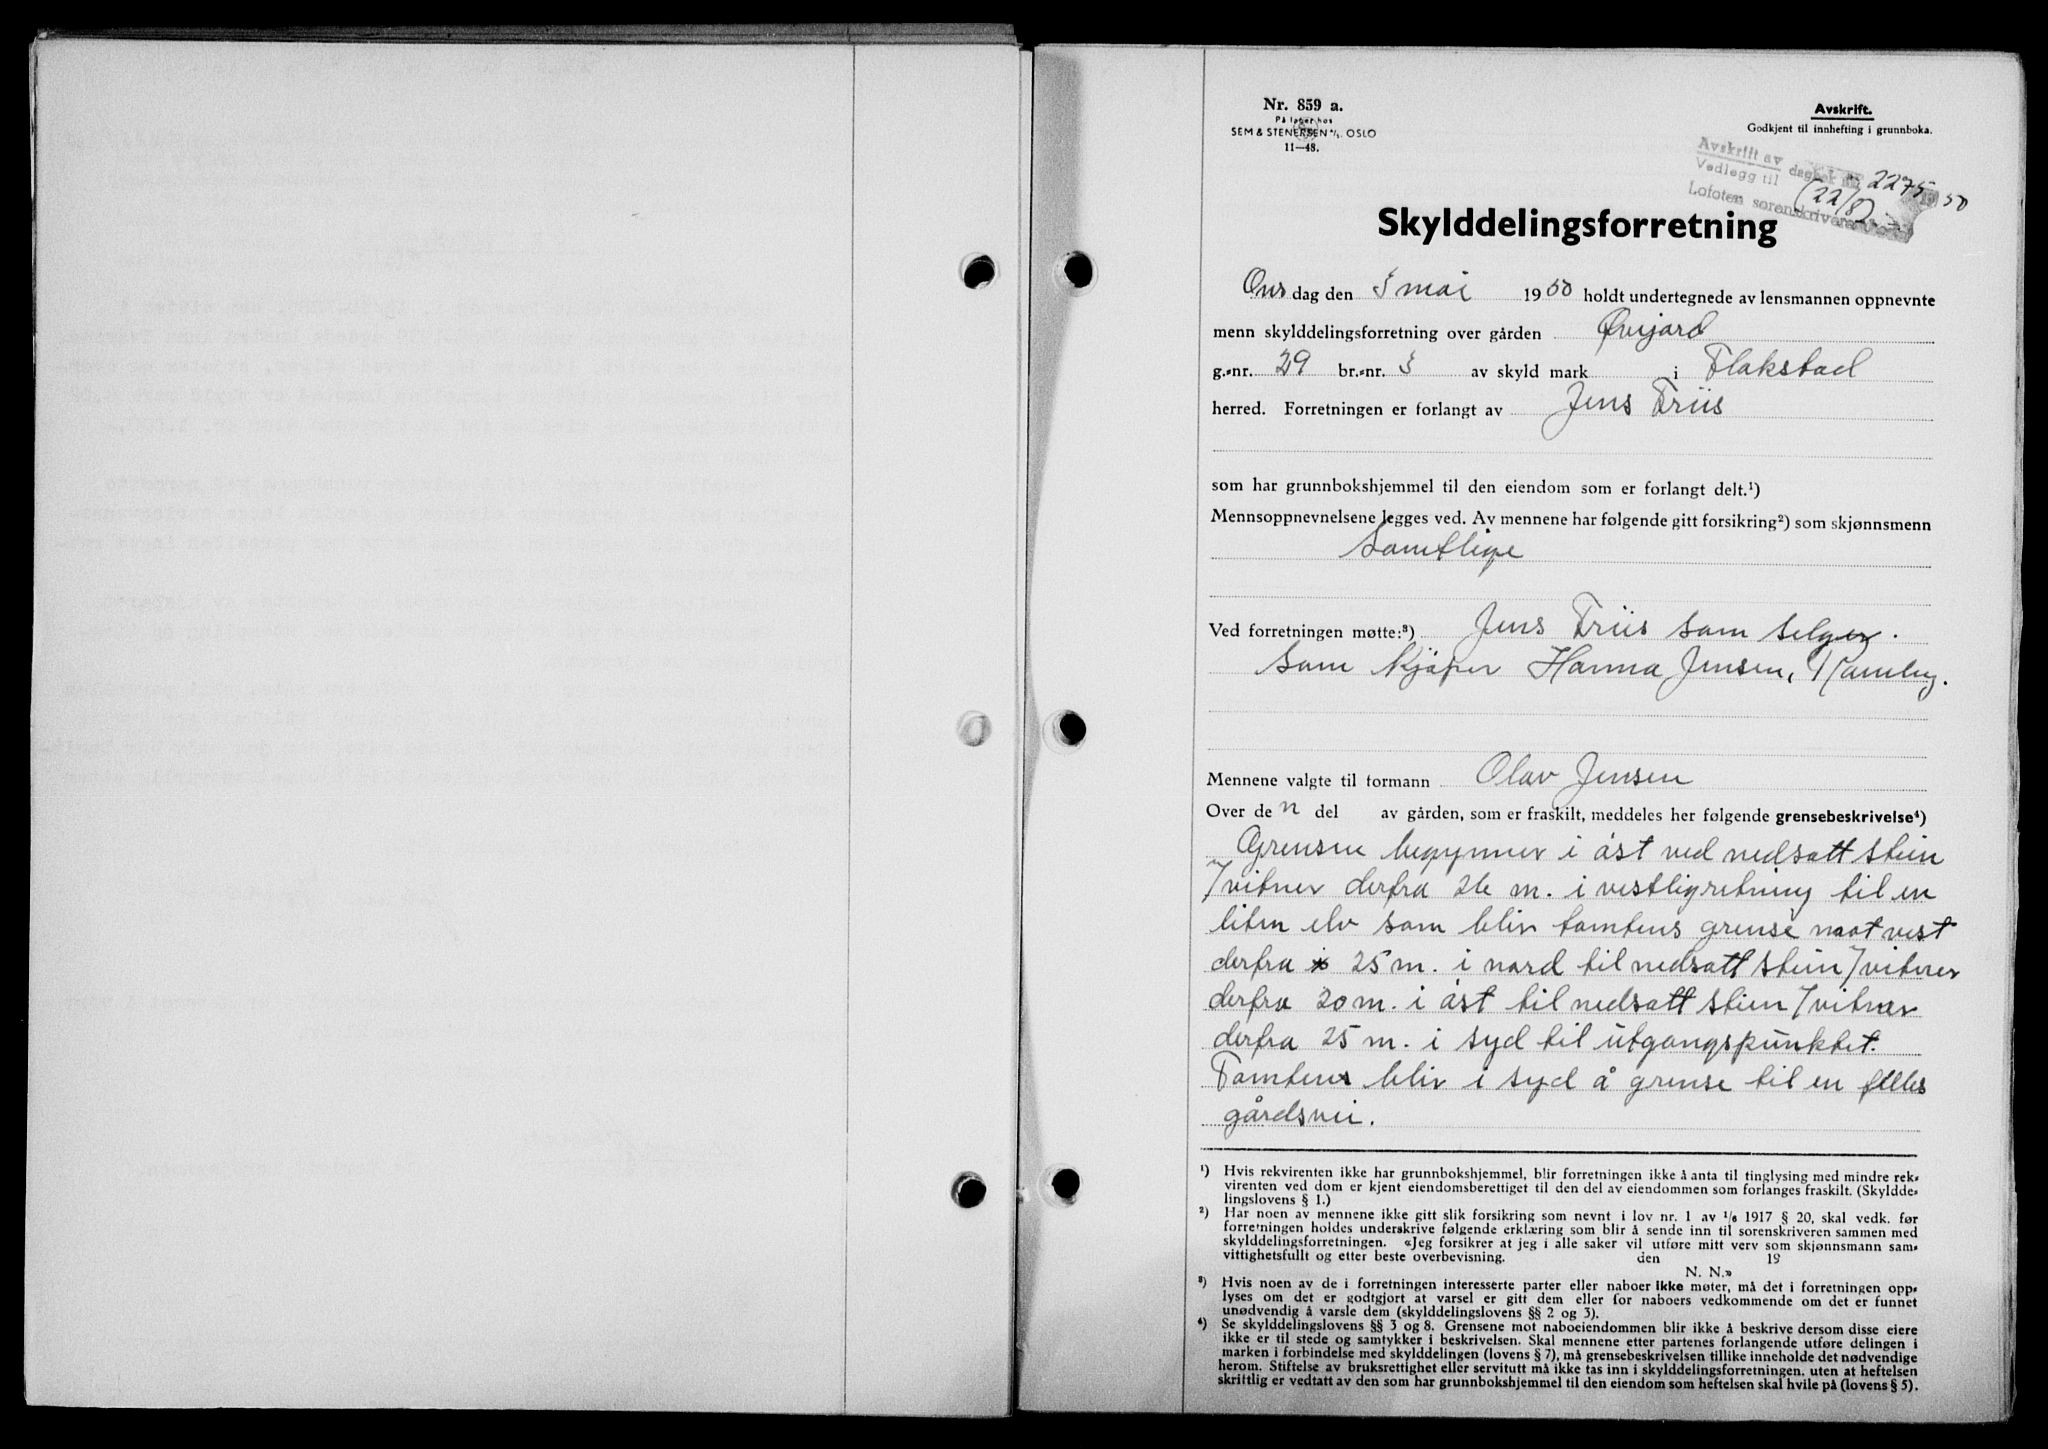 Nr. 859 a.
På lager hos
SEM & STENERSEN A/S. OSLO
11—48.
Avskrift.
Godkjent til innhefting i grunnboka.
Avskrift av dagbok nr. 2275 1950
Vedlegg til (22/8)
Lofoten sorenskriverembede
Skylddelingsforretning
Onsdag den 3 mai 1950 holdt undertegnede av lensmannen oppnevnte
menn skylddelingsforretning over gården
g.-nr. 29 br.-nr. 3 av skyld mark i Flakstad
herred. Forretningen er forlangt av Jens Friis
som har grunnbokshjemmel til den eiendom som er forlangt delt.¹)
Mennsoppnevnelsene legges ved. Av mennene har følgende gitt forsikring²) som skjønnsmenn
Samtlige
Ved forretningen møtte:³) Jens Friis som selger.
Som kjøper Hanna Jensen,
Mennene valgte til formann Olav Jensen
Over den del av gården, som er fraskilt, meddeles her følgende grensebeskrivelse⁴)
Grensen begynner i øst ved nedsatt stein
7 vitner derfra 26 m. i vestligretning til en
liten elv som blir tomtens grense mot vest
derfra 25 m. i nord til nedsatt stein 7 vitner
derfra 20 m. i øst til nedsatt stien 7 vitner
derfra 25 m. i syd til utgangspunktet.
Tomtens blir i syd å grense til en felles
gårdsvei.
¹) Hvis rekvirenten ikke har grunnbokshjemmel, blir forretningen ikke å anta til tinglysing med mindre rek-
virenten ved dom er kjent eiendomsberettiget til den del av eiendommen som forlanges fraskilt. (Skyldde-
lingslovens § 1.)
²) Har noen av mennene ikke gitt slik forsikring som nevnt i lov nr. 1 av 1/6 1917 § 20, skal vedk. før
forretningen holdes underskrive følgende erklæring som blir å sende inn til sorenskriveren sammen med
skylddelingsforretningen. «Jeg forsikrer at jeg i alle saker vil utføre mitt verv som skjønnsmann sam-
vittighetsfullt og etter beste overbevisning. den 19
N. N.»
³) Hvis noen av de i forretningen interesserte parter eller naboer ikke møter, må det i forretningen opp-
lyses om det er godtgjort at varsel er gitt dem eller for naboers vedkommende om det er funnet
unødvendig å varsle dem (skylddelingslovens §§ 2 og 3).
⁴) Se skylddelingslovens §§ 3 og 8. Grensene mot naboeiendommen blir ikke å beskrive dersom disse eiere
ikke er til stede og samtykker i beskrivelsen. Skal mennene etter partenes forlangende utføre delingen i
marken i forbindelse med skylddelingen (lovens § 7), må grensebeskrivelsen tillike inneholde det nødvendige
herom. Stiftelse av bruksrettighet eller servitutt må ikke tas inn i skylddelingsforretningen, uten at heftelsen
skriftlig er vedtatt av den som har grunnbokshjemmel til den eiendom som heftelsen skal hvile på (lovens § 5).